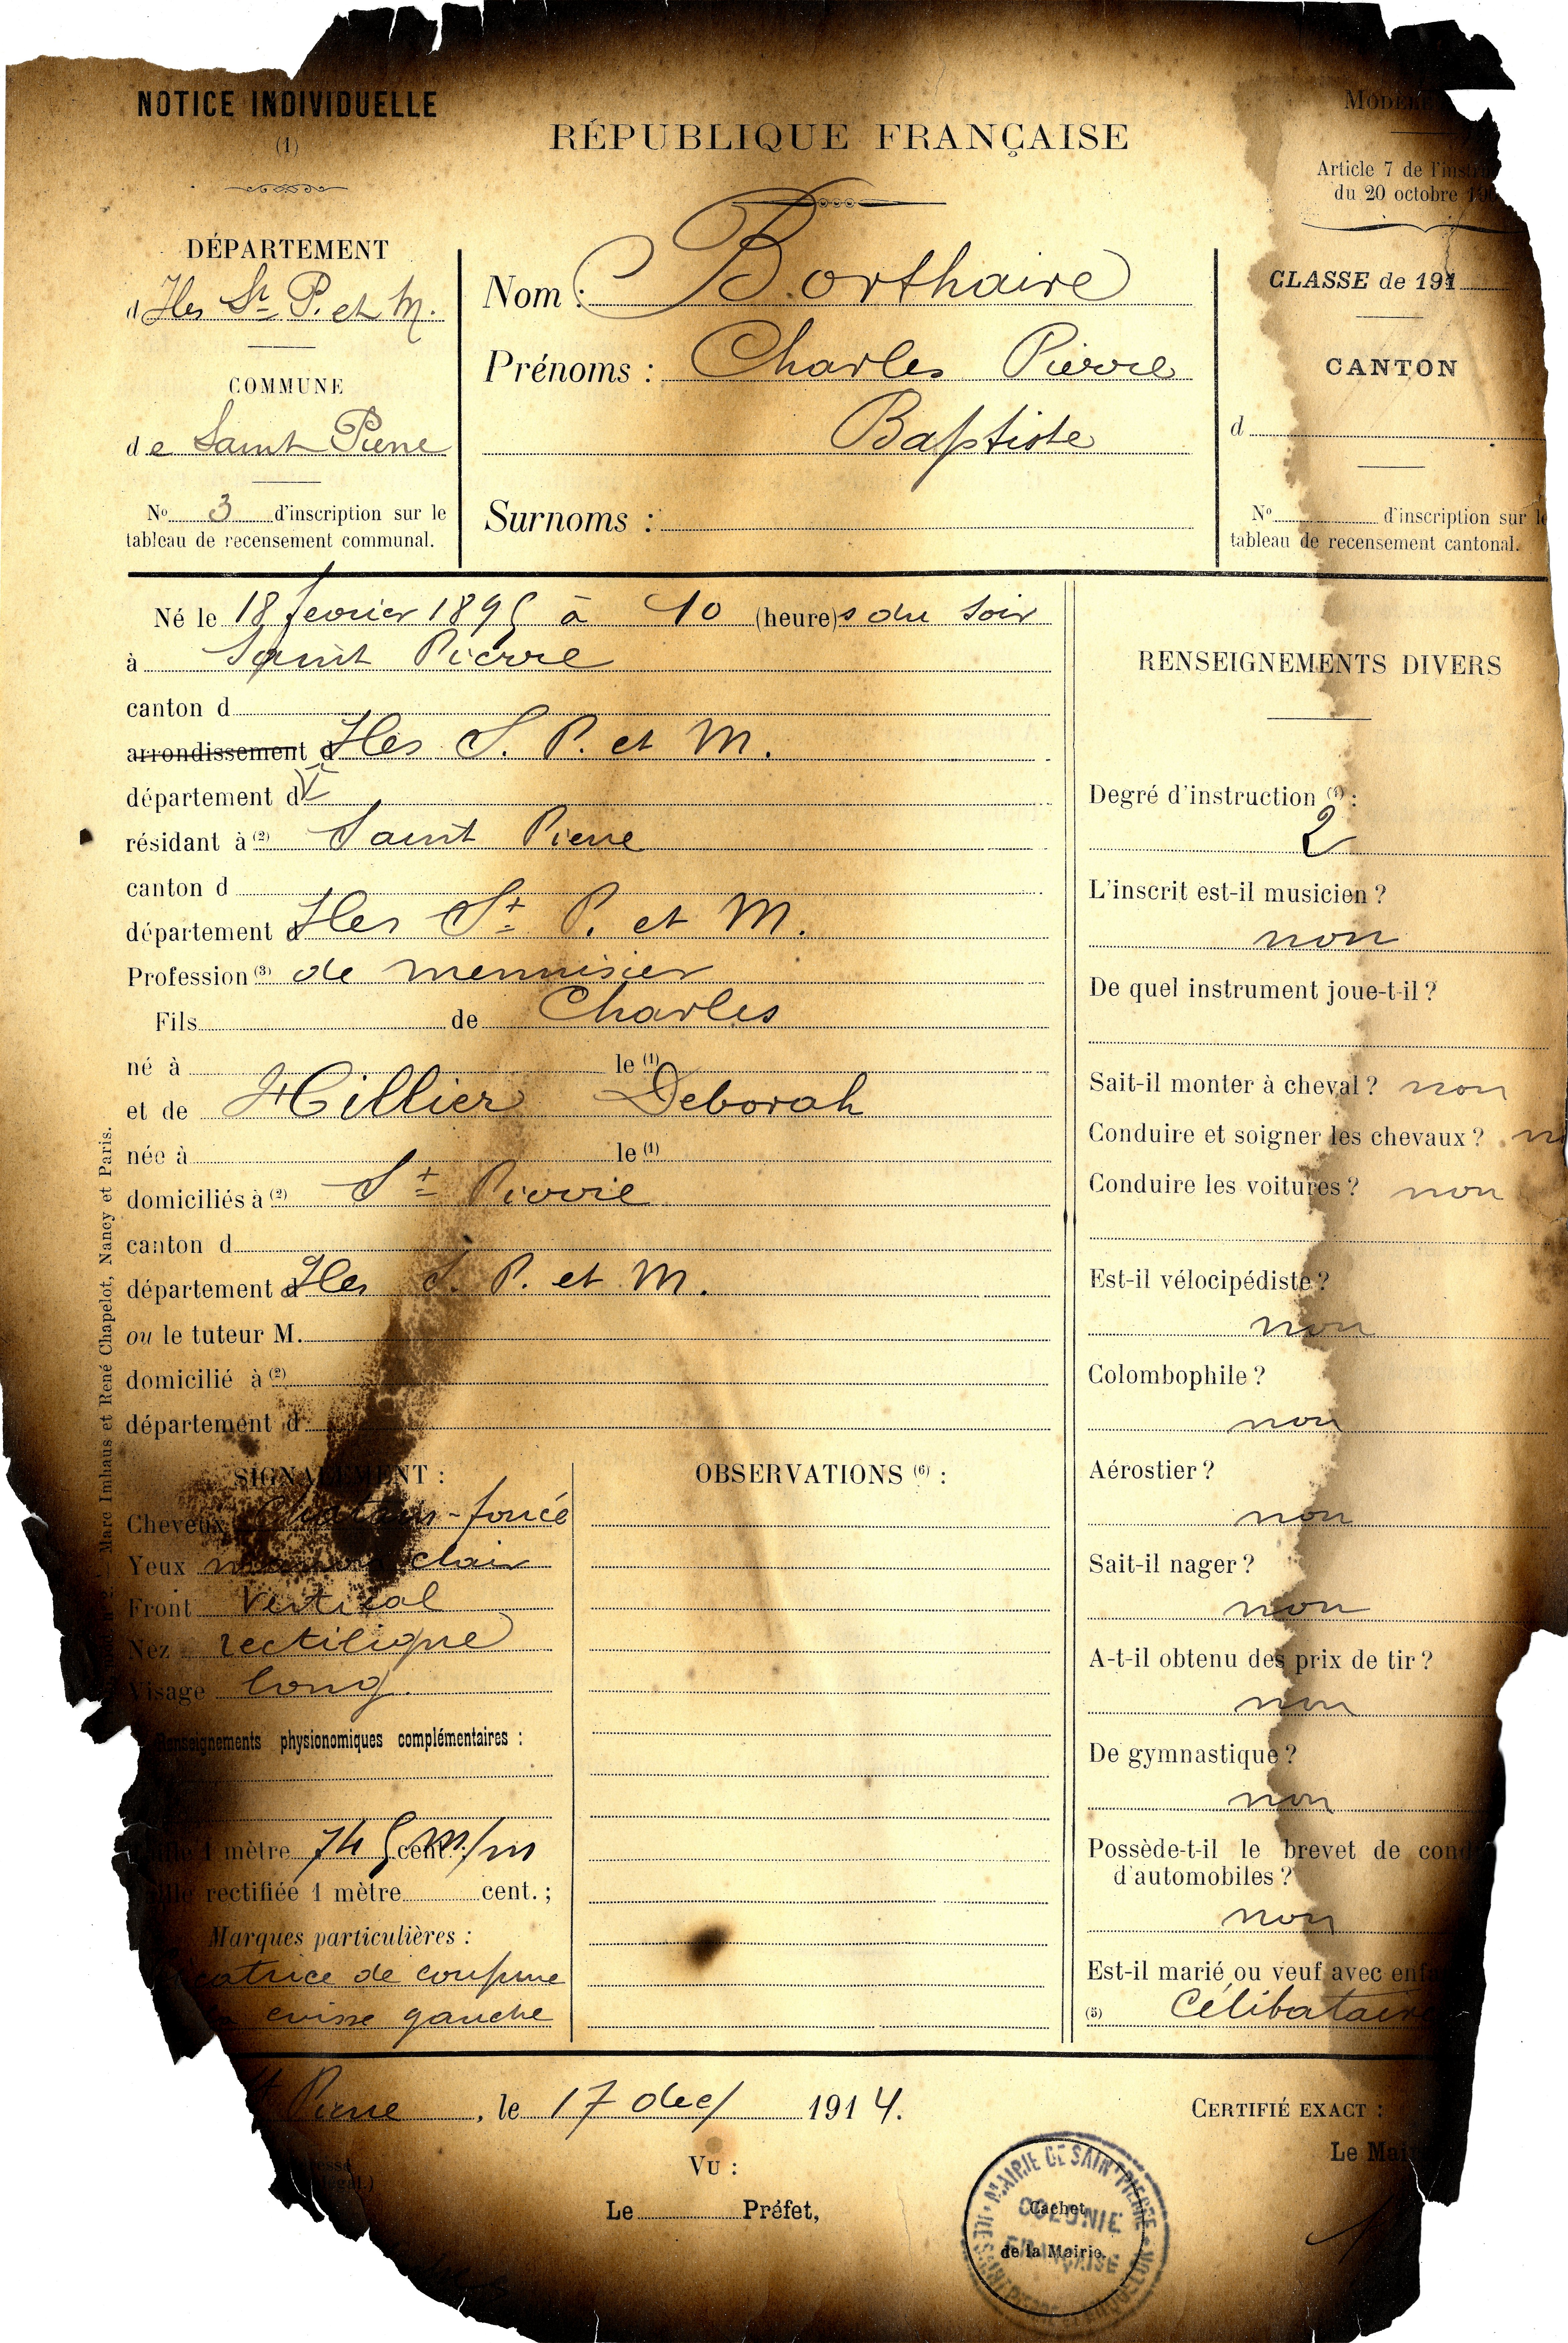 NOTICE INDIVIDUELLE
(1)
RÉPUBLIQUE FRANÇAISE
Article 7 de
du 20 octobre
DÉPARTEMENT
d Iles St P. et M.
COMMUNE
de Saint Pierre
No 3 d'inscription sur le
tableau de recensement communal.
Nom : Borthaire
Prénoms : Charles Pierre
Baptiste
Surnoms :
CLASSE de 191
CANTON
d
No d'inscription sur le
tableau de recensement cantonal.
Né le 18 fevrier 1895 à 10 (heure)s du soir
à Saint Pierre
canton d
arrondissement d Iles S. P. et M.
département d
résidant à (2) Saint Pierre
canton d
département d Iles St P. et M.
Profession (3) de menuisier
Fils de Charles
né à le (1)
et de Hillier Deborah
née à le (1)
domiciliés à (2) St Pierre
canton d
département d Iles S. P. et M.
ou le tuteur M.
domicilié à (2)
département d
SIGNALEMENT :
Cheveux chatain-foncé
Yeux marron clair
Front Vertical
Nez rectiligne
Visage long
Renseignements physionomiques complémentaires :
1 mètre 745 cent. m/m
rectifiée 1 mètre cent. ;
Marques particulières :
de coupure
cuisse gauche
OBSERVATIONS (6) :
RENSEIGNEMENTS DIVERS
Degré d'instruction (4) :
2
L'inscrit est-il musicien ?
non
De quel instrument joue-t-il ?
Sait-il monter à cheval ? non
Conduire et soigner les chevaux ?
Conduire les voitures ? non
Est-il vélocipédiste ?
non
Colombophile ?
non
Aérostier ?
non
Sait-il nager ?
non
A-t-il obtenu des prix de tir ?
non
De gymnastique ?
non
Possède-t-il le brevet de
d'automobiles ?
non
Est-il marié ou veuf avec
(5) Célibataire
Marc Imhaus et René Chapelot, Nancy et Paris.
Pierre , le 17 dec/ 1914.
CERTIFIÉ EXACT :
Le
VU :
Le Préfet,
Cachet
de la Mairie.
MAIRIE DE SAINT PIERRE
COLONIE
FRANÇAISE